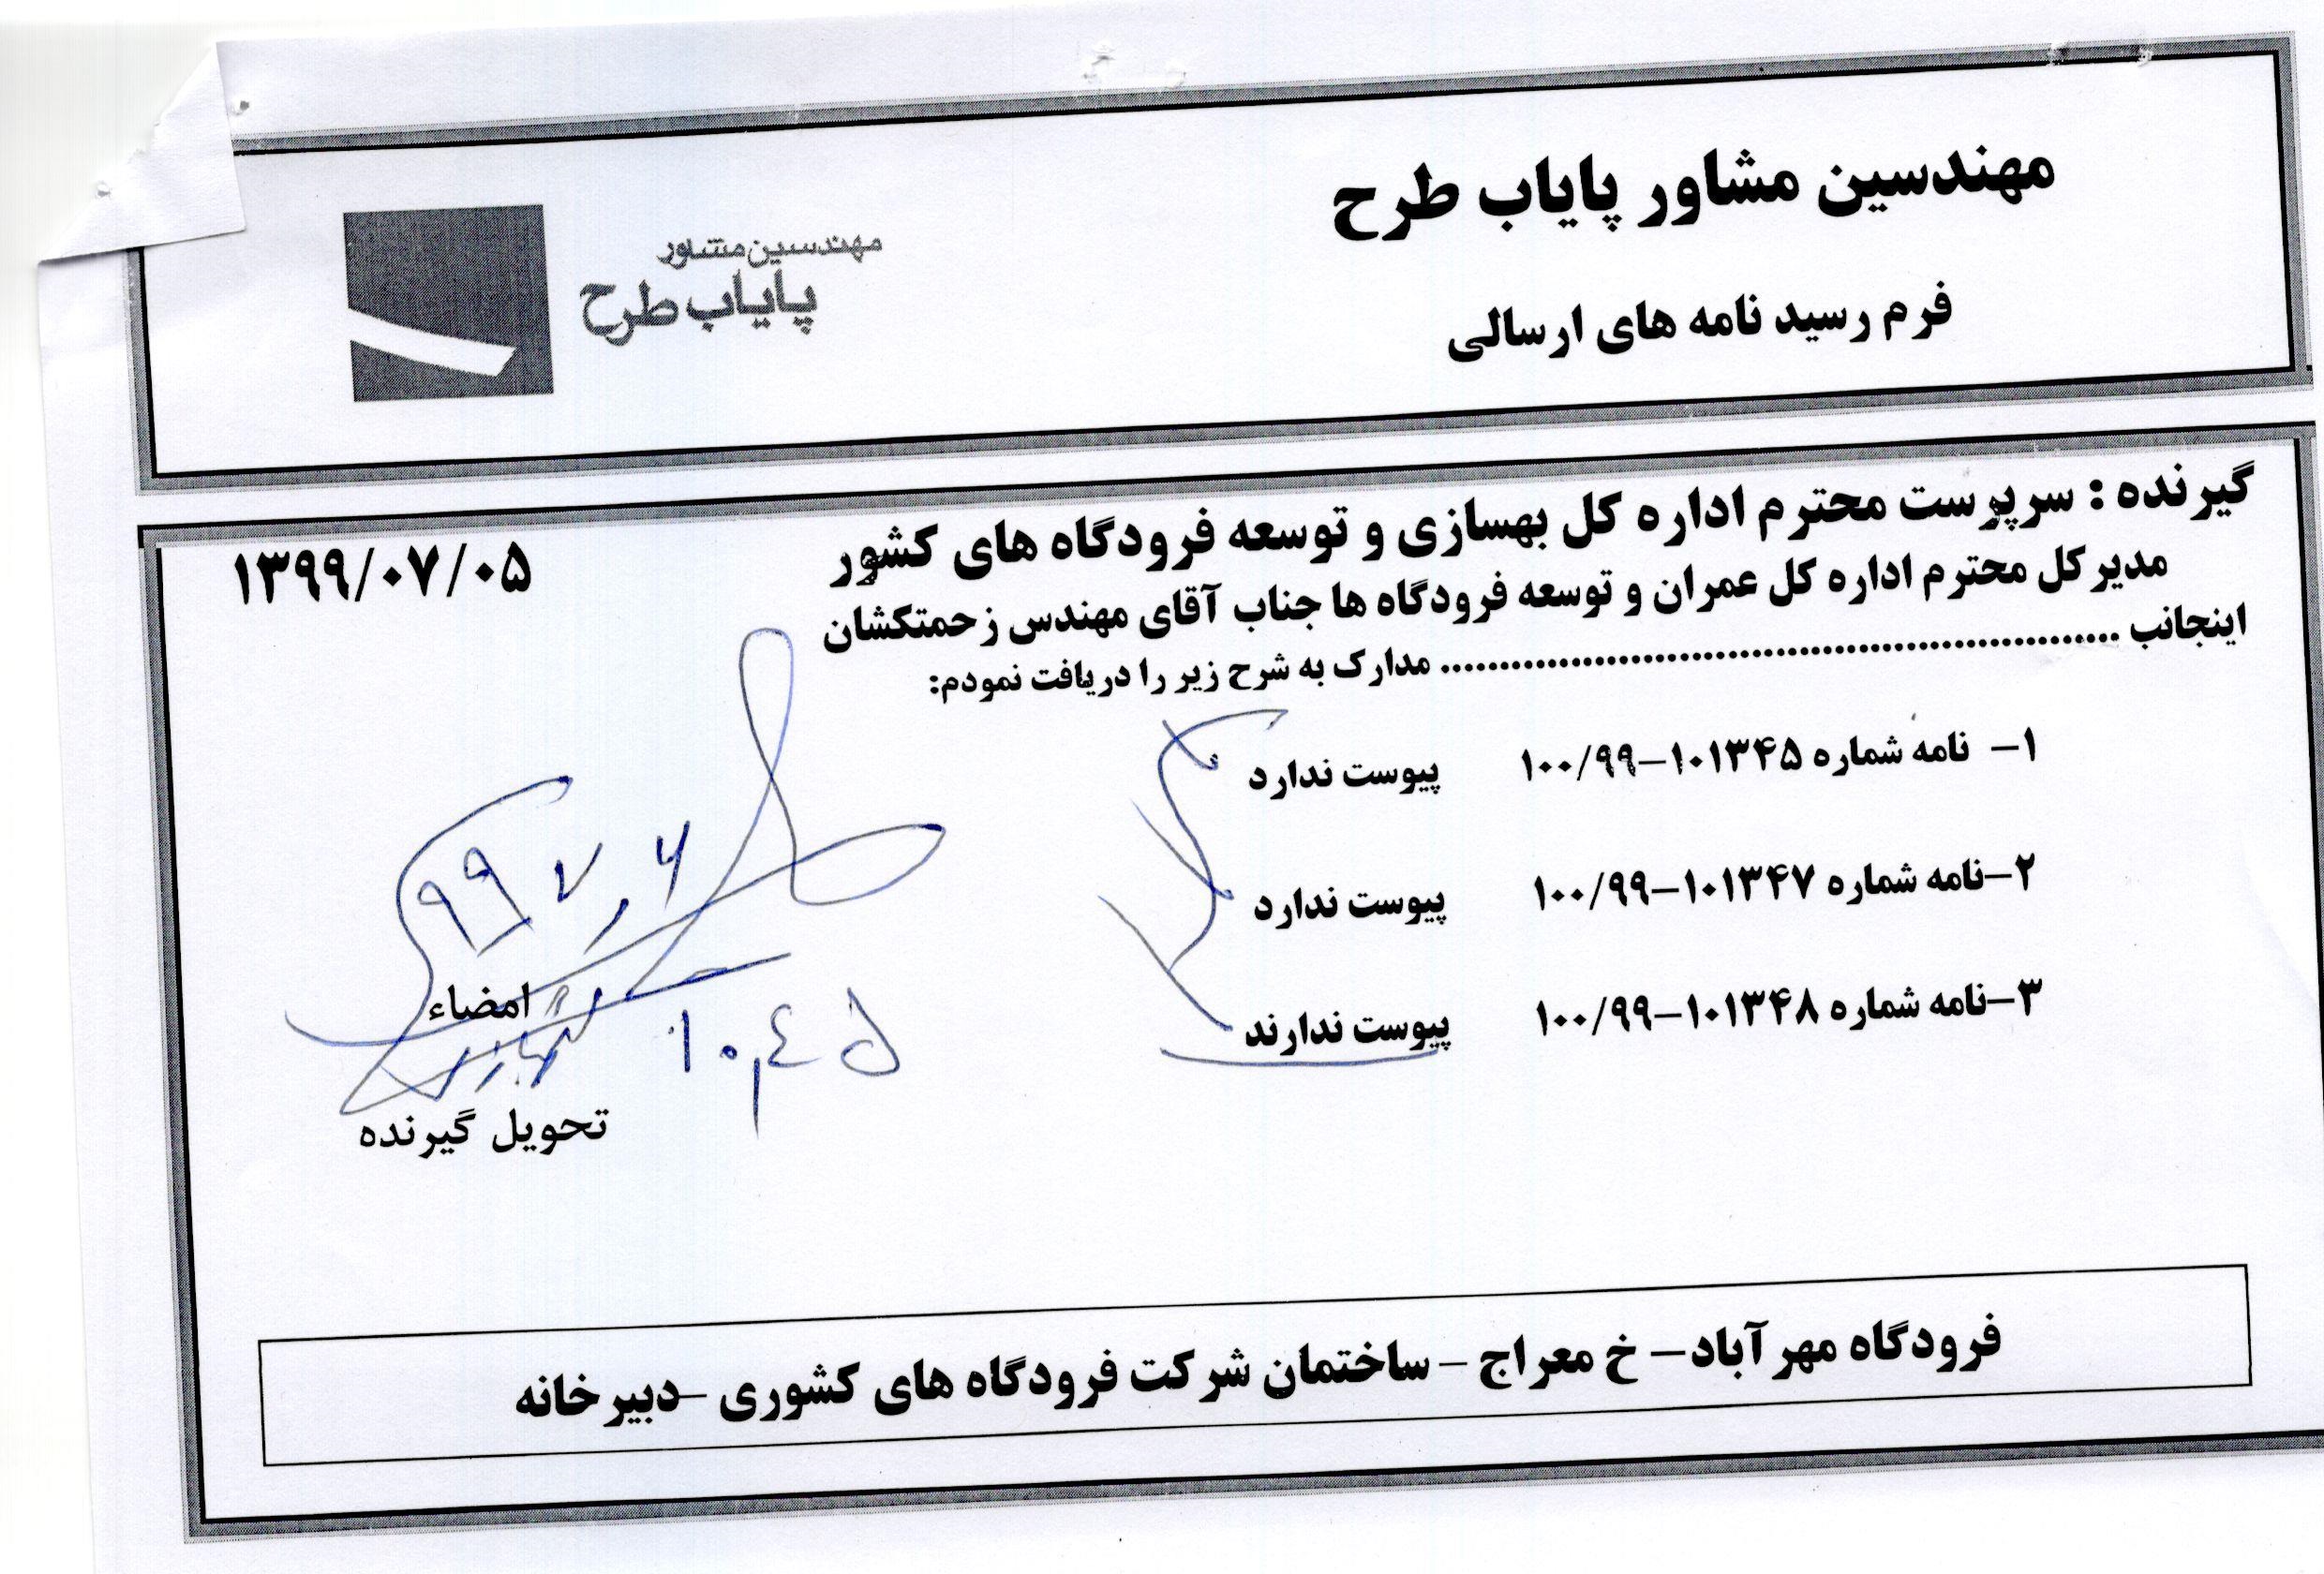 مهندسین مشاور پایاب طرح
مهندسین مشاور
پایاب طرح
فرم رسید نامه های ارسالی
گیرنده : سرپرست محترم اداره کل بهسازی و توسعه فرودگاه های کشور
۱۳۹۹/۰۷/۰۵
مدیر کل محترم اداره کل عمران و توسعه فرودگاه ها جناب آقای مهندس زحمتکشان
اینجانب ........................................................ مدارک به شرح زیر را دریافت نمودم:
۱- نامه شماره ۱۰۱۳۴۵-۱۰۰/۹۹ پیوست ندارد
۲-نامه شماره ۱۰۱۳۴۷-۱۰۰/۹۹ پیوست ندارد
۳-نامه شماره ۱۰۱۳۴۸-۱۰۰/۹۹ پیوست ندارند
۹۹ ۷ ۶
امضاء
تحویل گیرنده
فرودگاه مهرآباد- خ معراج - ساختمان شرکت فرودگاه های کشوری -دبیرخانه